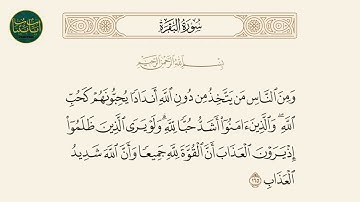 سُورَةُ البَقَرَةِ
بِسْمِ اللَّهِ الرَّحْمَٰنِ الرَّحِيمِ
وَمِنَ النَّاسِ مَن يَتَّخِذُ مِن دُونِ اللَّهِ أَندَادًا يُحِبُّونَهُمْ كَحُبِّ
اللَّهِ ۖ وَالَّذِينَ ءَامَنُوٓا أَشَدُّ حُبًّا لِّلَّهِ ۗ وَلَوْ يَرَى الَّذِينَ ظَلَمُوٓا
إِذْ يَرَوْنَ الْعَذَابَ أَنَّ الْقُوَّةَ لِلَّهِ جَمِيعًا وَأَنَّ اللَّهَ شَدِيدُ
الْعَذَابِ ١٦٥